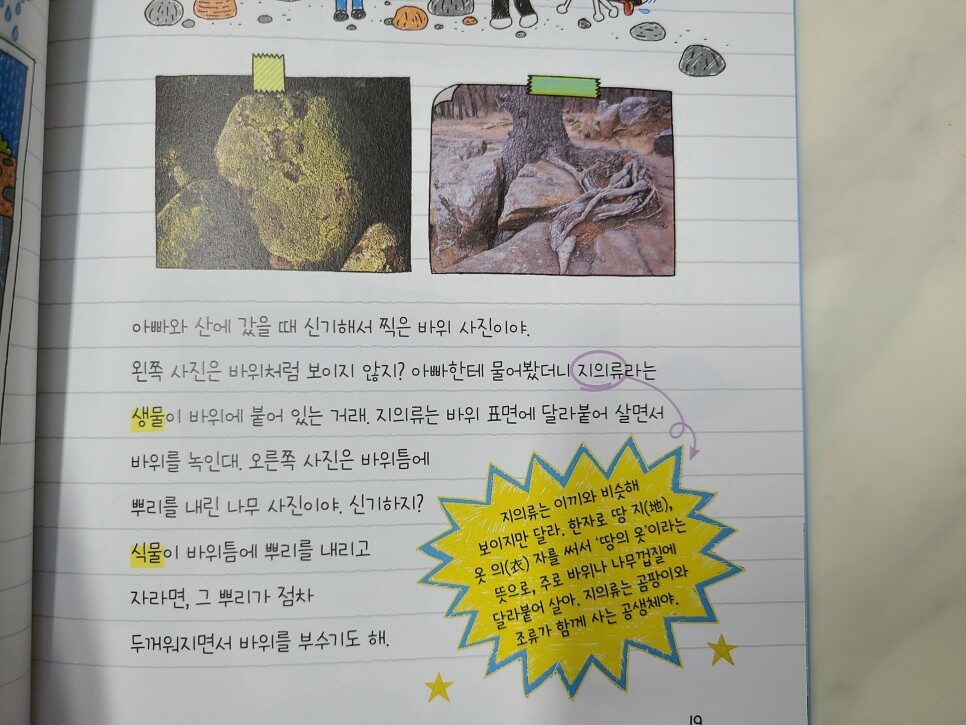 아빠와 산에 갔을 때 신기해서 찍은 바위 사진이야.
왼쪽 사진은 바위처럼 보이지 않지? 아빠한테 물어봤더니 지의류라는
생물이 바위에 붙어 있는 거래. 지의류는 바위 표면에 달라붙어 살면서
바위를 녹인대. 오른쪽 사진은 바위틈에
뿌리를 내린 나무 사진이야. 신기하지?
식물이 바위틈에 뿌리를 내리고
자라면, 그 뿌리가 점차
두꺼워지면서 바위를 부수기도 해.
지의류는 이끼와 비슷해
보이지만 달라. 한자로 땅 지(地),
옷 의(衣) 자를 써서 '땅의 옷'이라는
뜻으로, 주로 바위나 나무껍질에
달라붙어 살아. 지의류는 곰팡이와
조류가 함께 사는 공생체야.
19